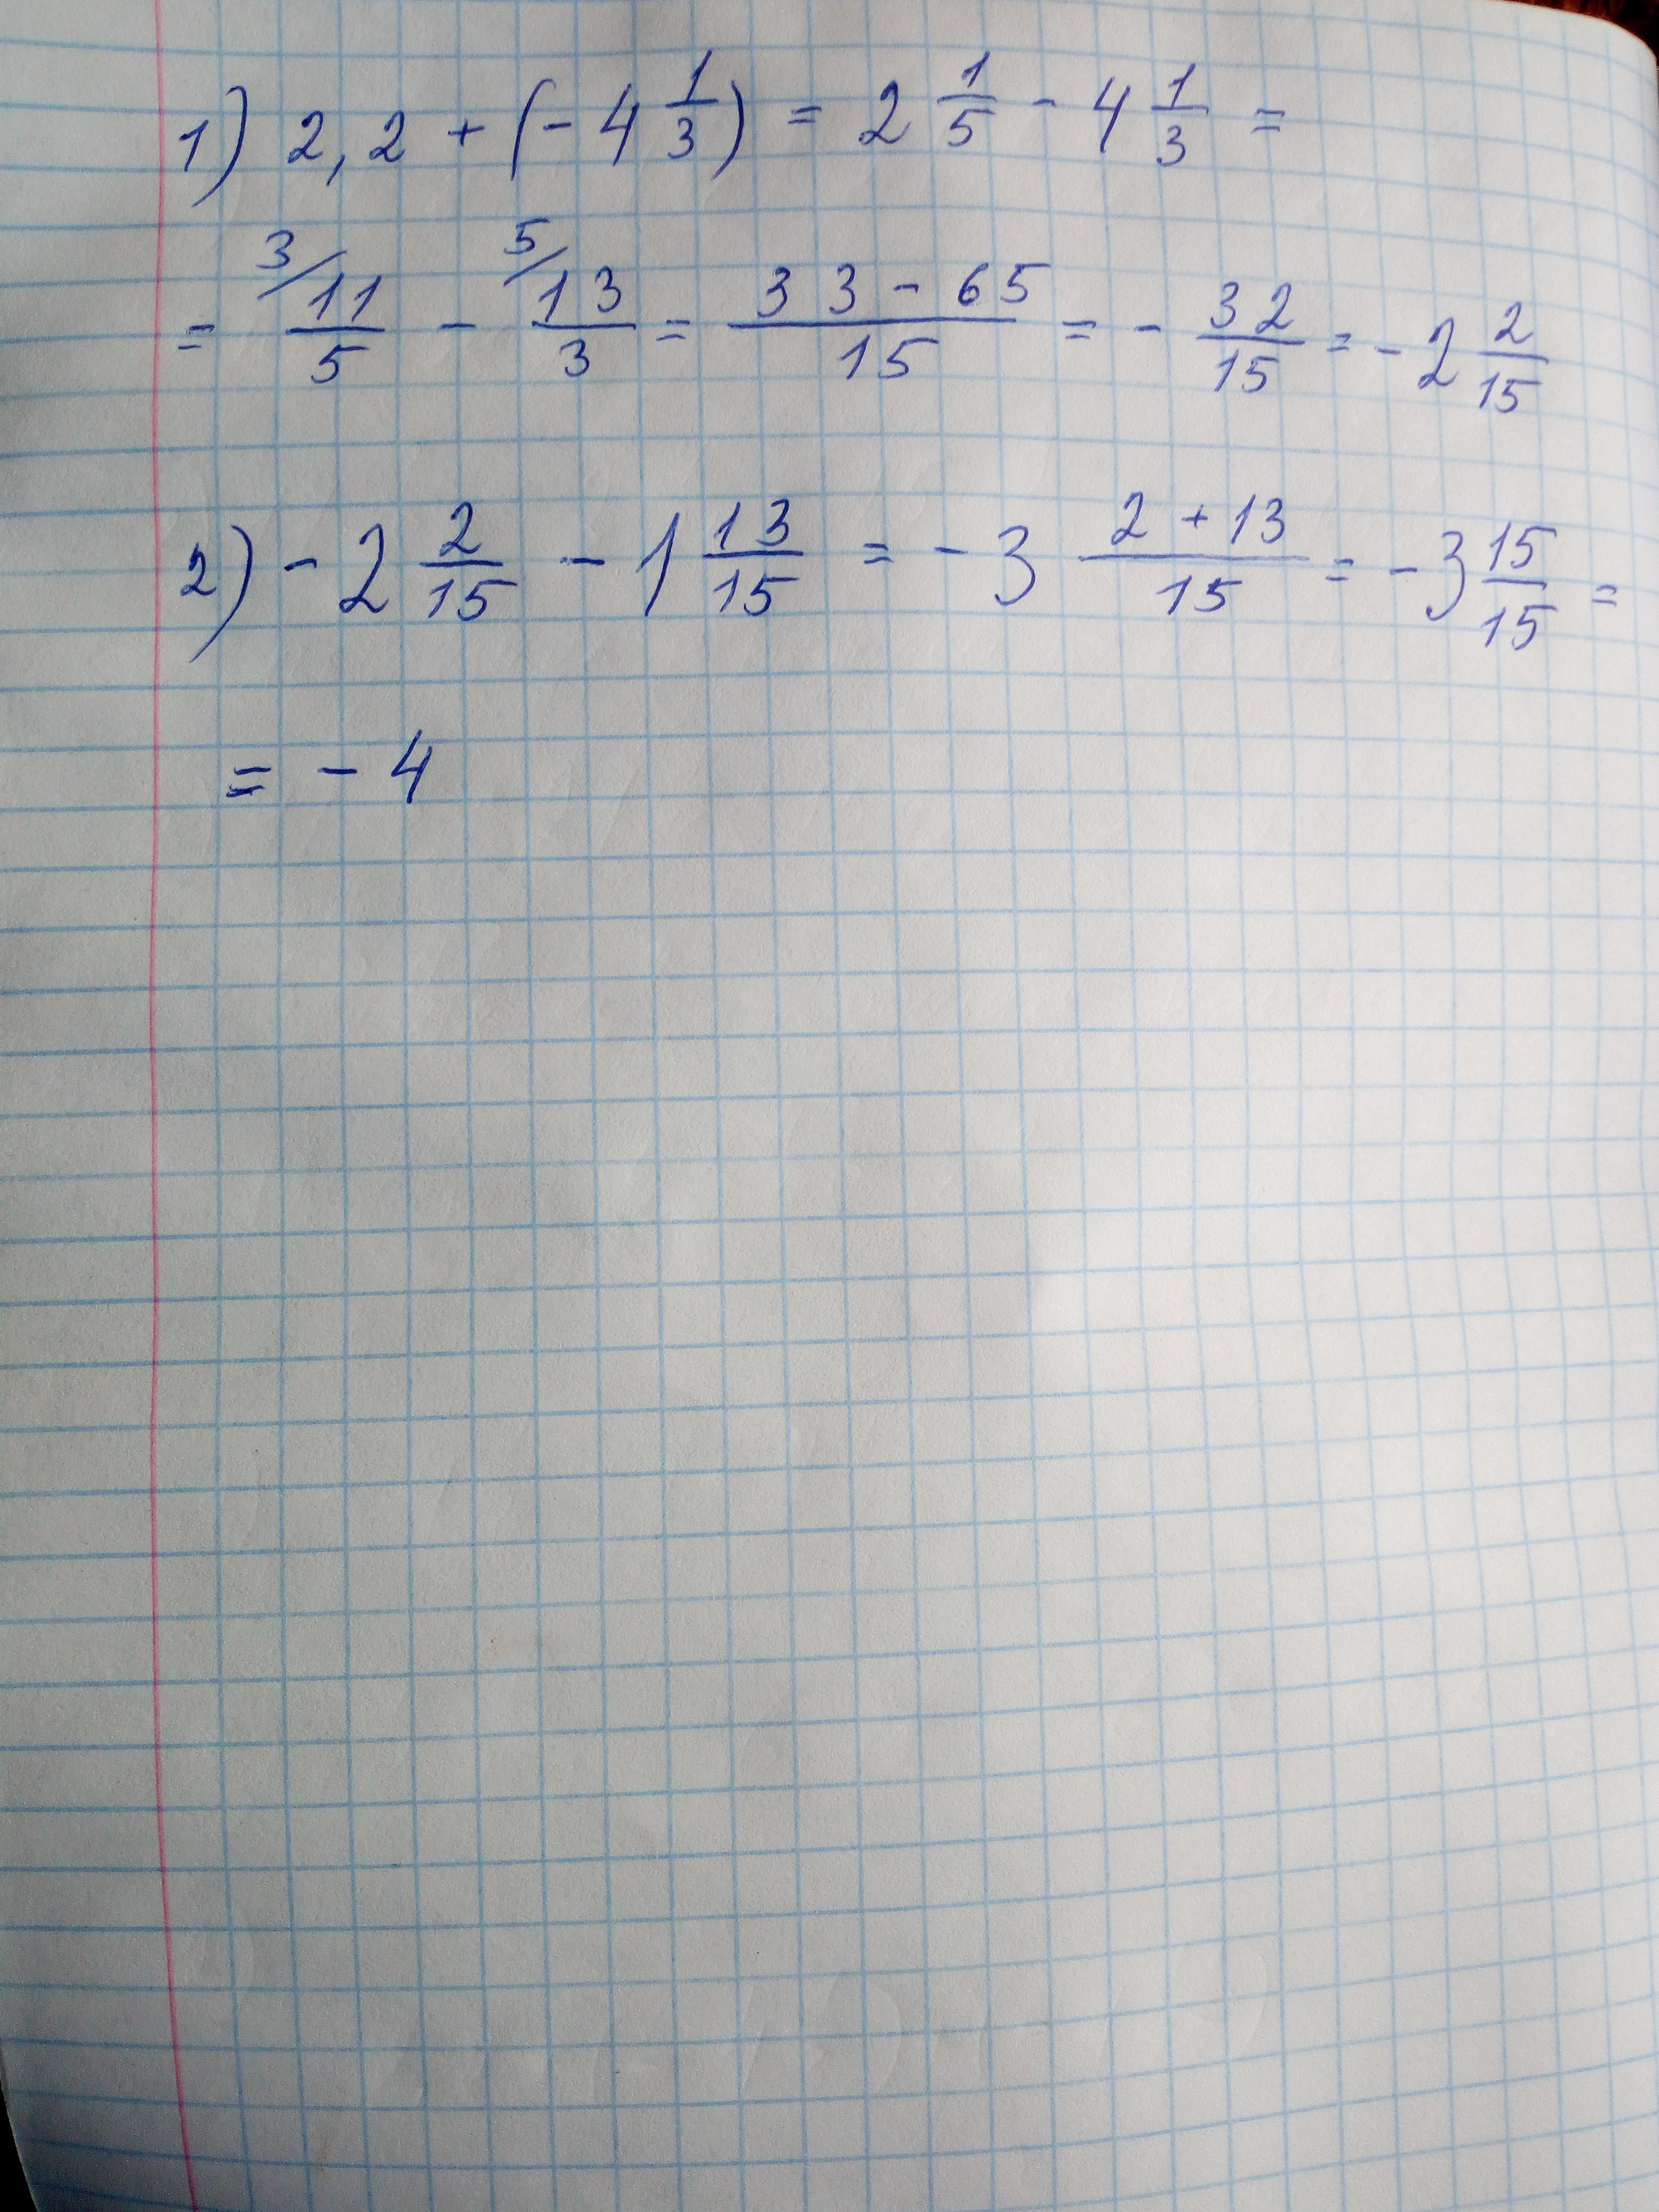 1) 2,2 + (- 4 1/3) = 2 1/5 - 4 1/3 =
= 3/ 11/5 - 5/ 13/3 = (33 - 65)/15 = - 32/15 = - 2 2/15
2) - 2 2/15 - 1 13/15 = - 3 (2 + 13)/15 = - 3 15/15 =
= - 4